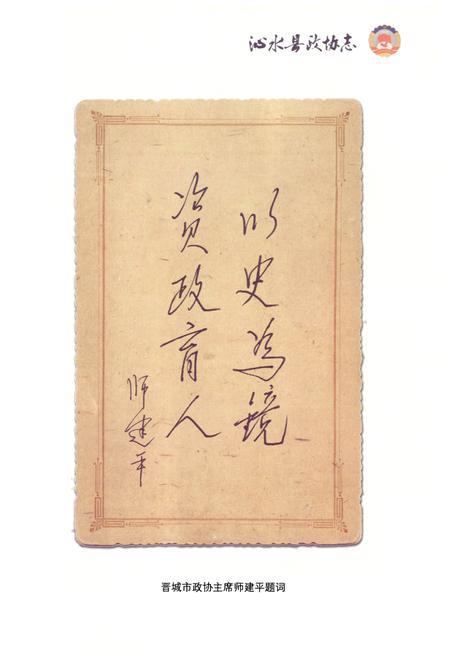 沁水县政协志
以史为镜
资政育人
师建平
晋城市政协主席师建平题词